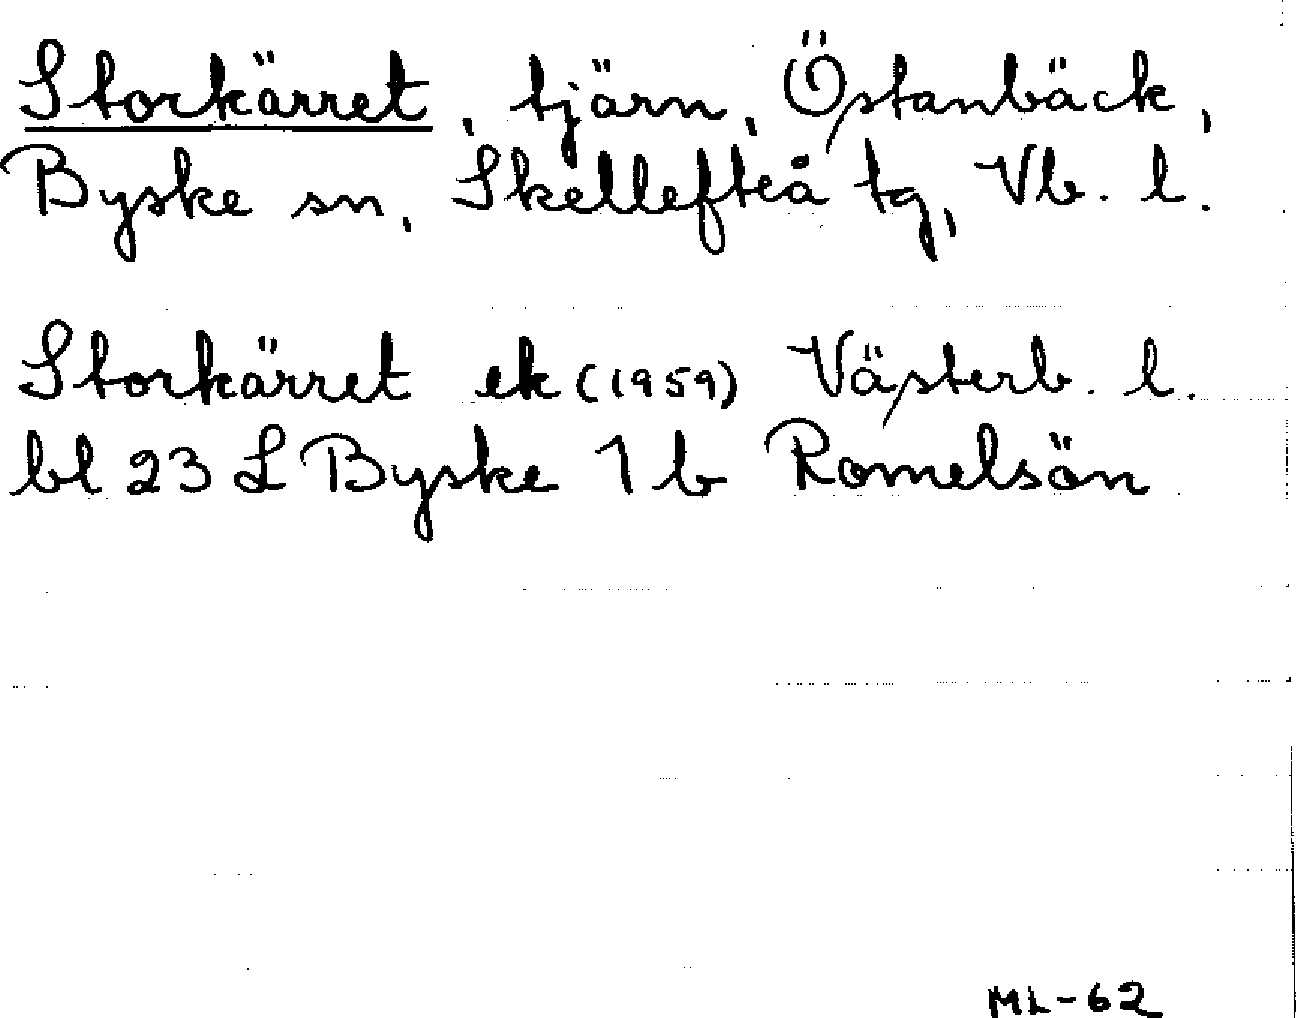 Storkärret, tjärn, Östanbäck,
Byske sn, Skellefteå tg, Vb. l.
Storkärret ek (1959) Västerb. l.
bl 23 L Byske 1 b Romelsön
ML-62